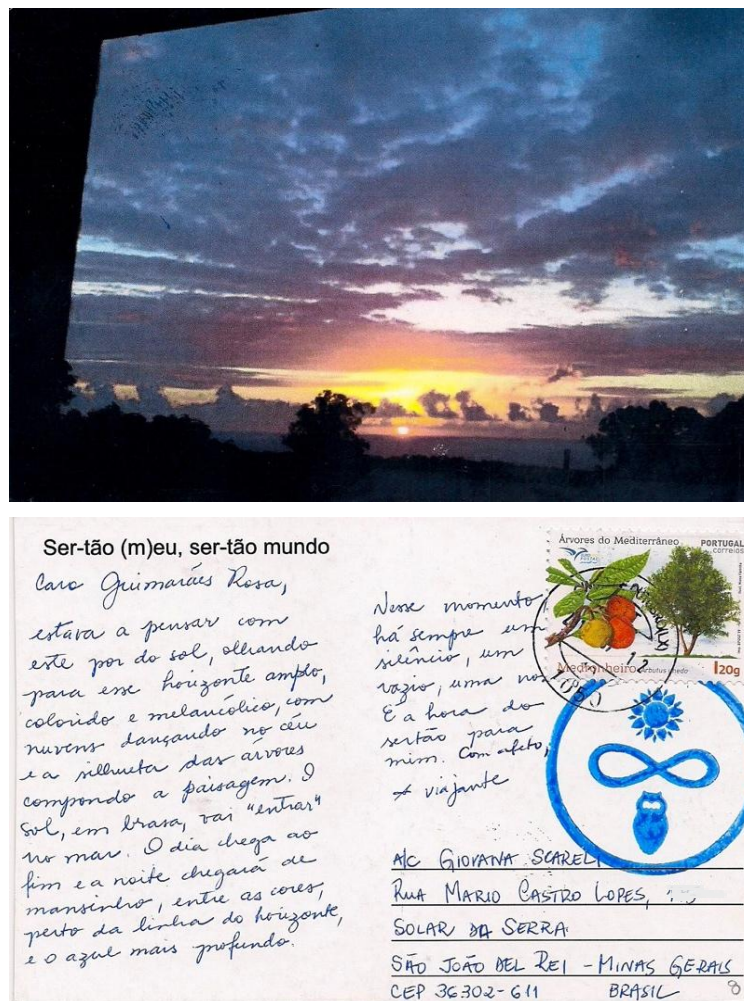 Ser-tão (m)eu, ser-tão mundo
Caro Guimarães Rosa,
estava a pensar com
este por do sol, olhando
para esse horizonte amplo,
colorido e melancólico, com
nuvens dançando no céu
e a silhueta das árvores
compondo a paisagem. O
sol, em brasa, vai "entrar"
no mar. O dia chega ao
fim e a noite chegará de
mansinho, entre as cores,
perto da linha do horizonte,
e o azul mais profundo.
Nesse momento,
há sempre um
silêncio, um
vazio, uma
É a hora do
sertão para
mim. Com afeto,
viajante
Árvores do Mediterrâneo
PORTUGAL
correios
Medronheiro Arbutus unedo
I20g
1050
A/C GIOVANA SCARELI
RUA MARIO CASTRO LOPES,
SOLAR DA SERRA
SÃO JOÃO DEL REI - MINAS GERAIS
CEP 36302-611 BRASIL
8